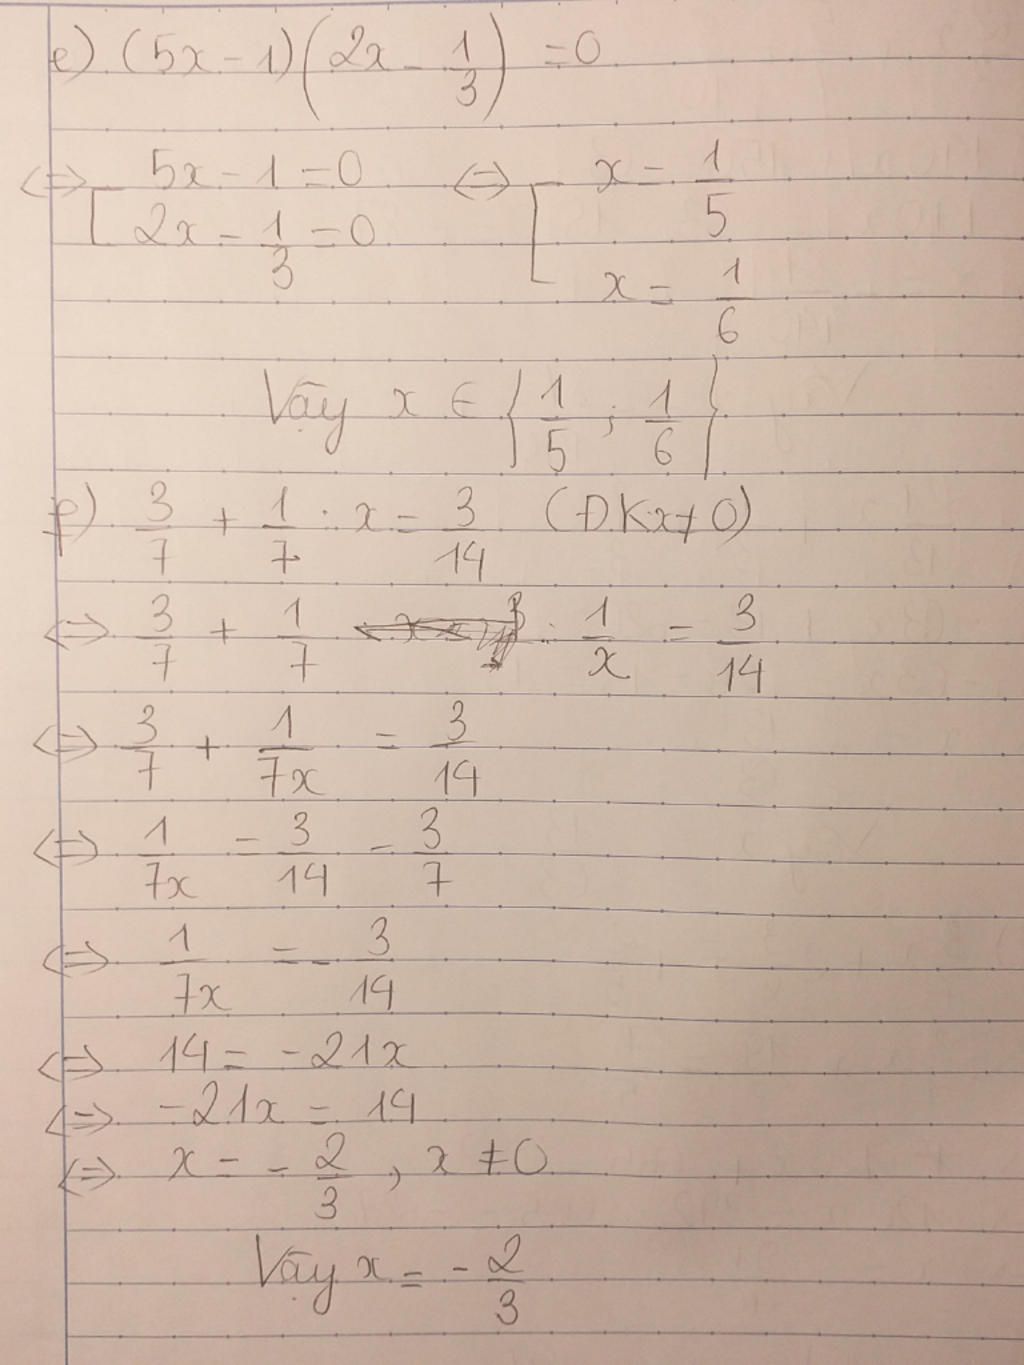 e) (5x - 1)(2x - 1/3) = 0
⇔ [ 5x - 1 = 0 ⇔ [ x = 1/5
2x - 1/3 = 0 x = 1/6
Vậy x ∈ {1/5 ; 1/6}
f) 3/7 + 1/7 : x = 3/14 (ĐKx≠0)
⇔ 3/7 + 1/7 . 1/x = 3/14
⇔ 3/7 + 1/7x = 3/14
⇔ 1/7x = 3/14 - 3/7
⇔ 1/7x = - 3/14
⇔ 14 = -21x
⇔ -21x = 14
⇔ x = - 2/3 , x ≠ 0
Vậy x = - 2/3